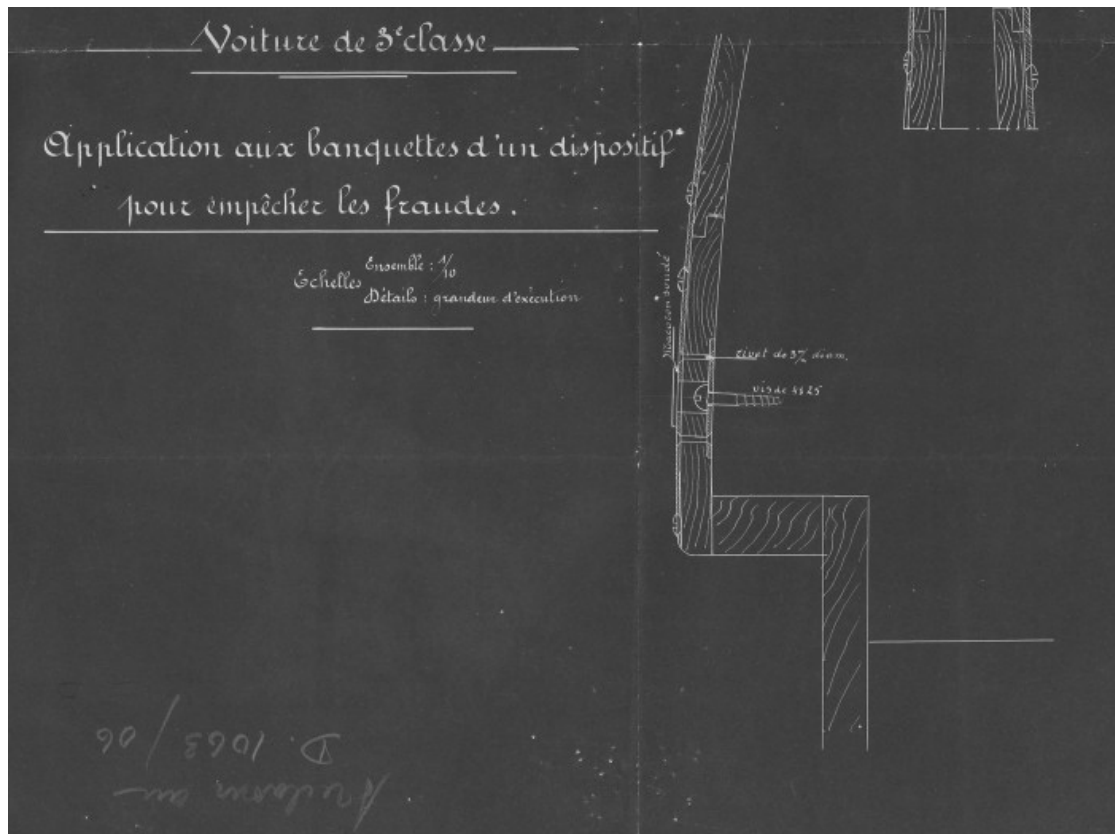 Voiture de 3e classe
Application aux banquettes d'un dispositif
pour empêcher les fraudes.
Echelles
Ensemble : 1/10
Détails : grandeur d'exécution
Macaron soudé
rivet de 3m/m diam.
vis de 4s25
D. 1063/06